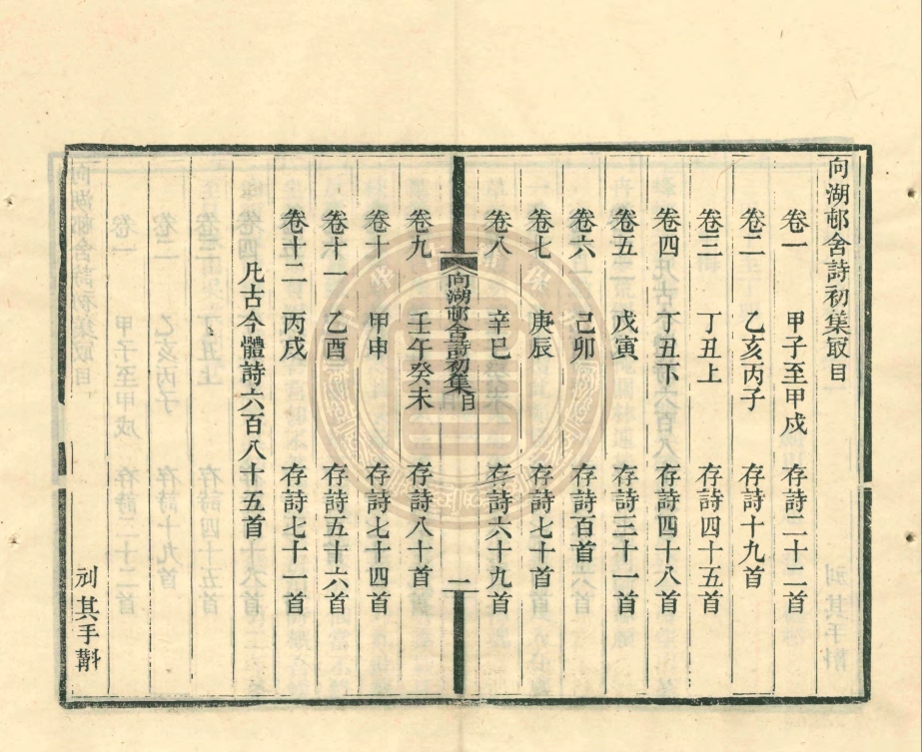 向湖邨舍詩初集㝡目
卷一 甲子至甲戌 存詩二十二首
卷二 乙亥丙子 存詩十九首
卷三 丁丑上 存詩四十五首
卷四 丁丑下 存詩四十八首
卷五 戊寅 存詩三十一首
卷六 己卯 存詩百首
卷七 庚辰 存詩七十首
卷八 辛巳 存詩六十九首
向湖邨舍詩初集 目 一
卷九 壬午癸未 存詩八十首
卷十 甲申 存詩七十四首
卷十一 乙酉 存詩五十六首
卷十二 丙戌 存詩七十一首
凡古今體詩六百八十五首
刋其手斠